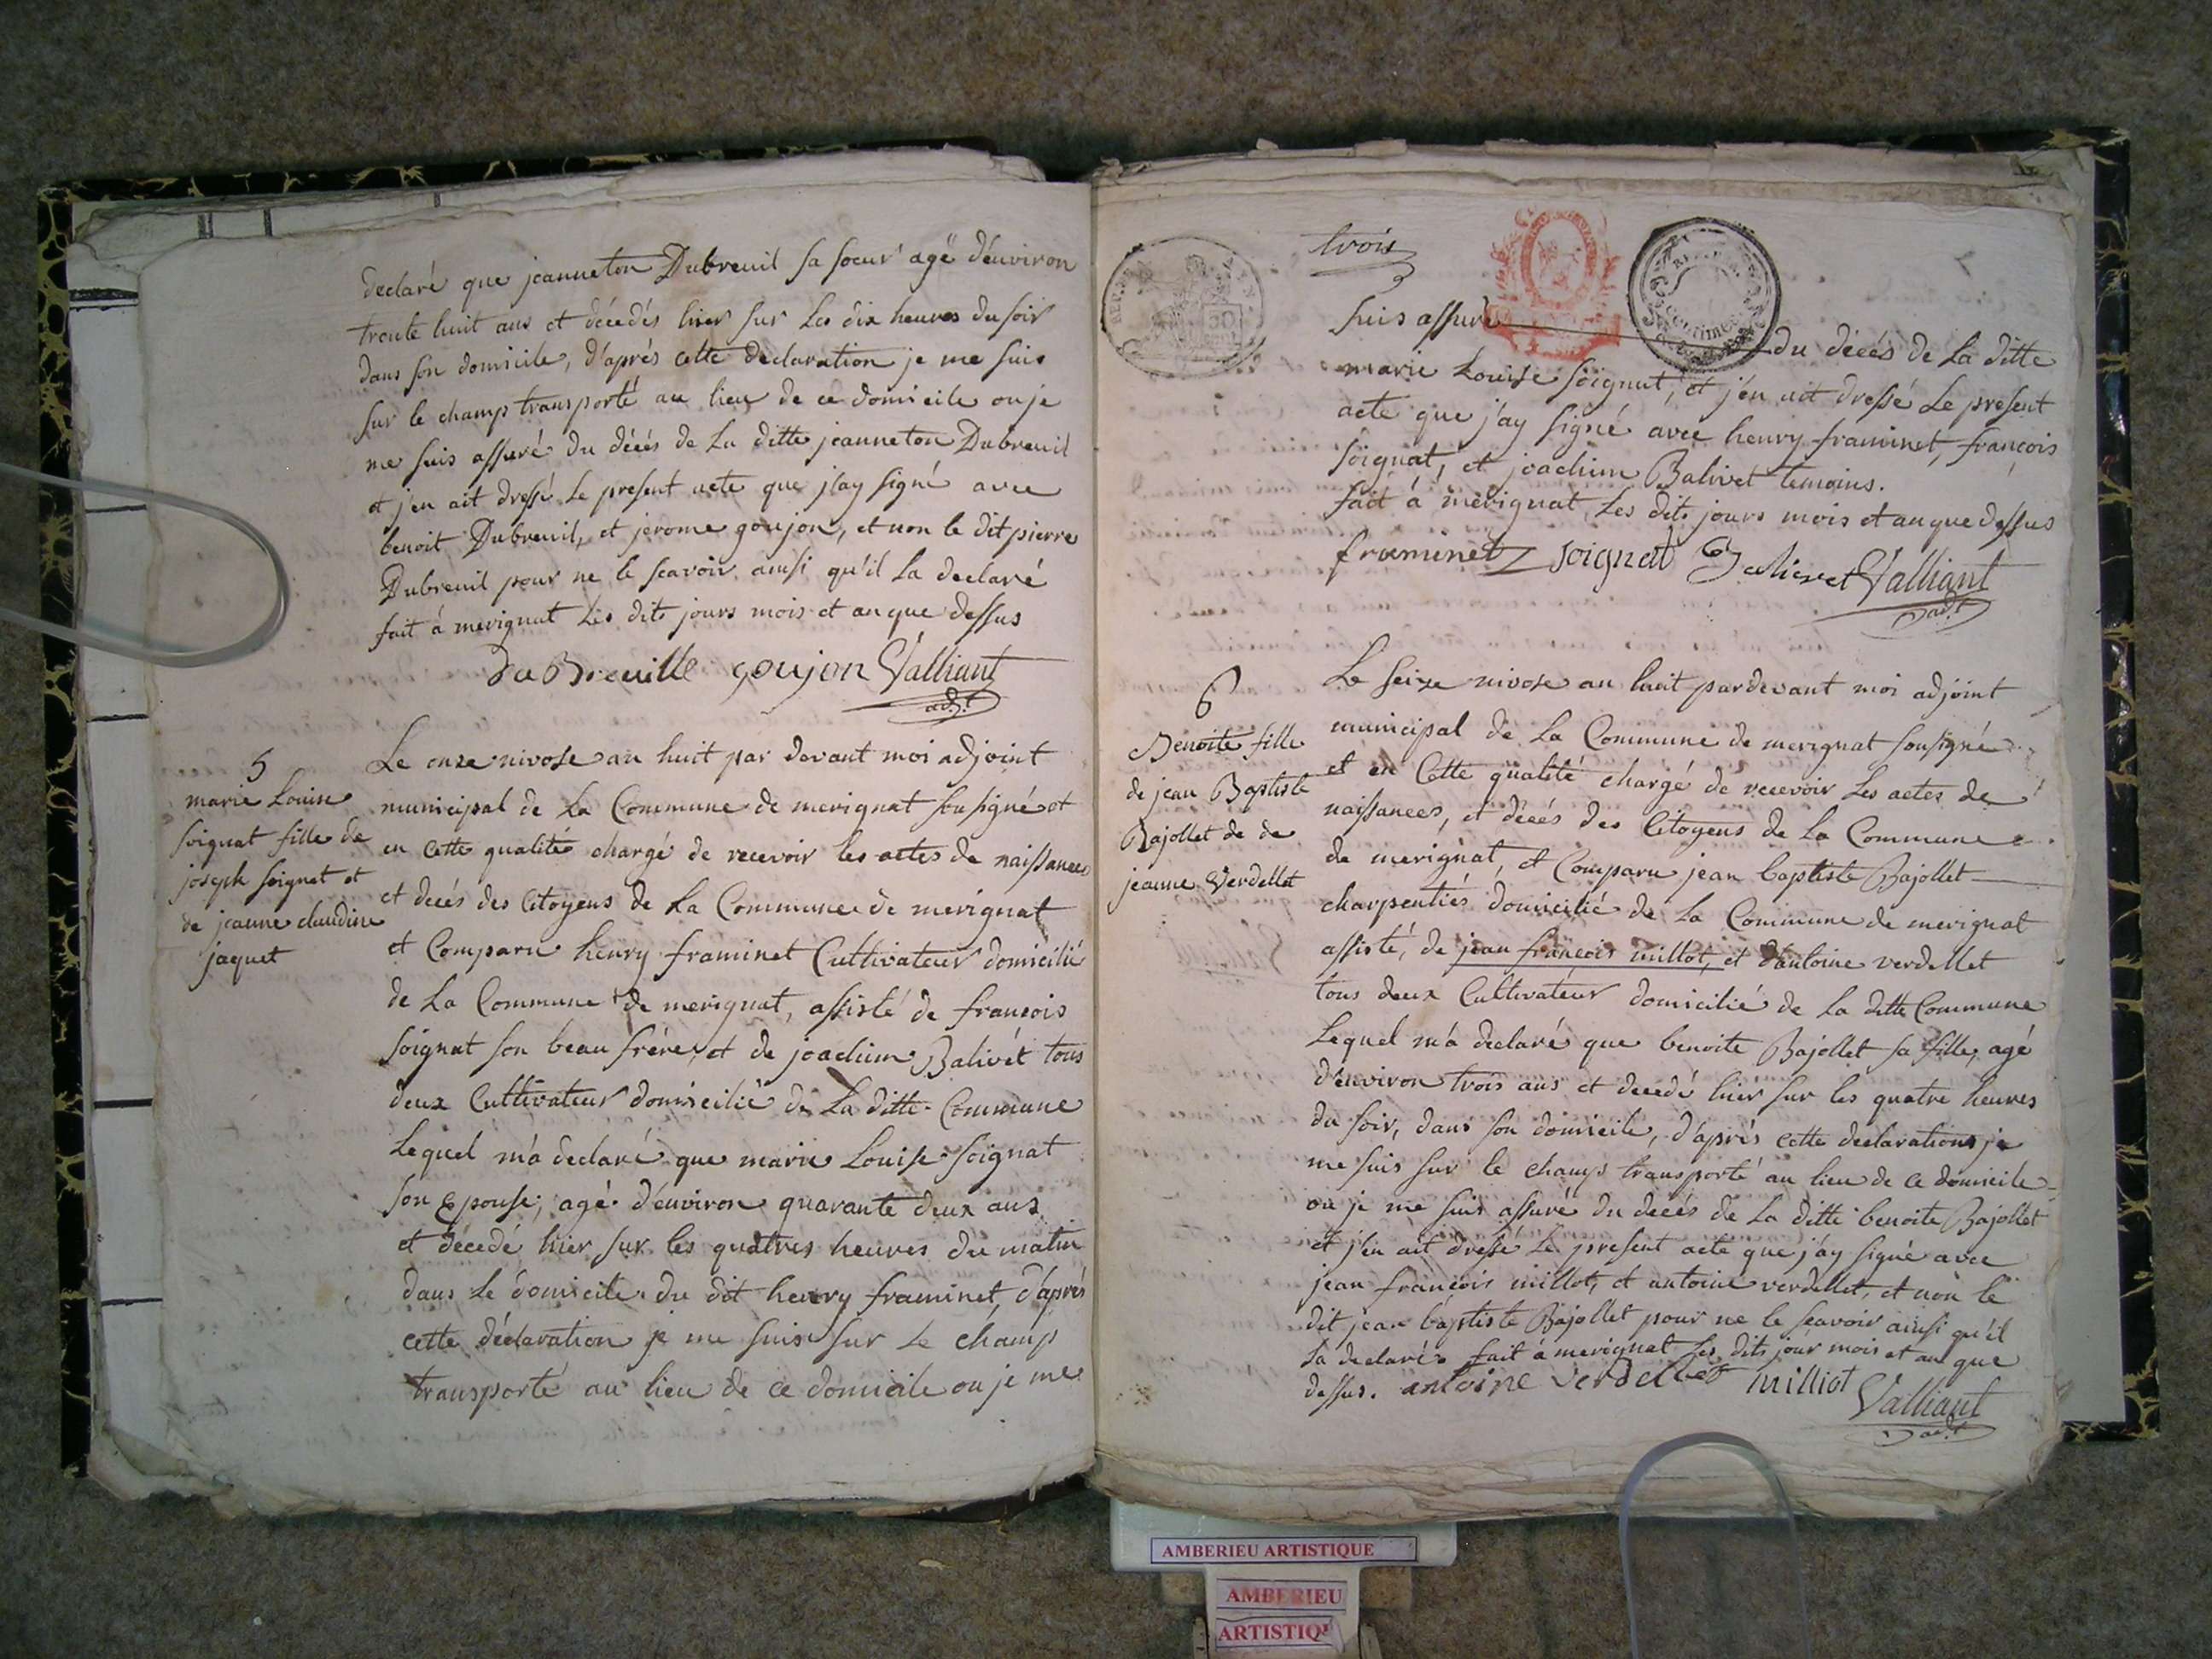 declaré que jeanneton Dubreuil sa soeur agé d'environ
trente huit ans et décédés hier sur les dix heures du soir
dans son domicile, d'aprés cette declaration je me suis
sur le champ transporté au lieu de ce domicile ou je
me suis assuré du décés de la ditte jeanneton Dubreuil
et j'en ait dressé le present acte que j'ay signé avec
benoit Dubreuil, et jerome goujon, et non le dit pierre
Dubreuil pour ne le scavoir ainsi qu'il la declaré
fait à merignat les dits jours mois et an que dessus
du Breuille goujon Valliant
adj.t
5
marie Louise
soignat fille de
joseph soignat et
de jeanne claudine
jaquet
Le onze nivose an huit par devant moi adjoint
municipal de la Commune de merignat sousigné et
en cette qualité chargé de recevoir les actes de naissances
et decés des Citoyens de la Commune de merignat
et Comparu henry framinet Cultivateur domicilié
de la Commune de merignat, assisté de francois
soignat son beau frére, et de joachim Balivét tous
deux Cultivateur domicilié de la ditte Commune
Lequel m'à declaré que marie Louise soignat
son Epouse, agé d'environ quarante deux ans
et décedé hier sur les quatres heures du matin
dans le domicile du dit henry framinet, d'aprés
cette déclaration je me suis sur le champ
transporté au lieu de ce domicile ou je me
trois
suis assuré du décés de la ditte
marie Louise soignat, et j'en ait dressé le present
acte que j'ay signé avec henry framinet, françois
soignat, et joachim Balivet temoins.
fait à merignat les dits jours mois et an que dessus
framinet soignat Balivet Valliant
adj.t
6
Benoite fille
de jean Baptiste
Bajollet de de
jeanne Verdellet
Le seize nivose an huit pardevant moi adjoint
municipal de la Commune de merignat sousigné
et en Cette qualité chargé de recevoir les actes de
naissances, et décés des Citoyens de la Commune
de merignat, et Comparu jean baptiste Bajollet
charpentiés domicilié de la Commune de merignat
assisté, de jean francois millot, et d'antoine verdellet
tous deux Cultivateur domicilié de la ditte Commune
Lequel m'à declaré que benoite Bajollet sa fille, agé
d'environ trois ans et decedé hier sur les quatre heures
du soir, dans son domicile, d'aprés cette declaration je
me suis sur le champ transporté au lieu de ce domicile
ou je me suis assuré du decés de la ditte benoite Bajollet
et j'en ait dressé le present acte que j'ay signé avec
jean francois millot, et antoine verdellet, et non le
dit jean baptiste Bajollet pour ne le scavoir ainsi qu'il
la declaré. fait à merignat les dits jour mois et an que
dessus. antoine verdellet milliot
Valliant
adj.t
AMBERIEU ARTISTIQUE
AMBERIEU
ARTISTIQU